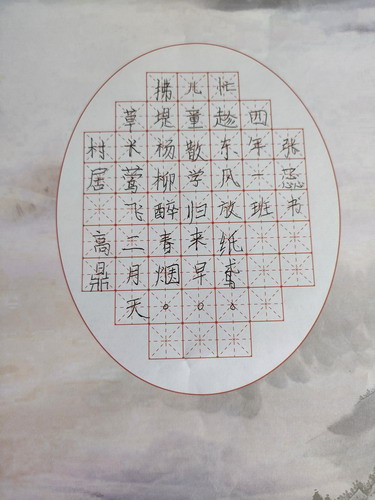 村居 高鼎
草长莺飞二月天
拂堤杨柳醉春烟。
儿童散学归来早。
忙趁东风放纸鸢。
四年一班
张书